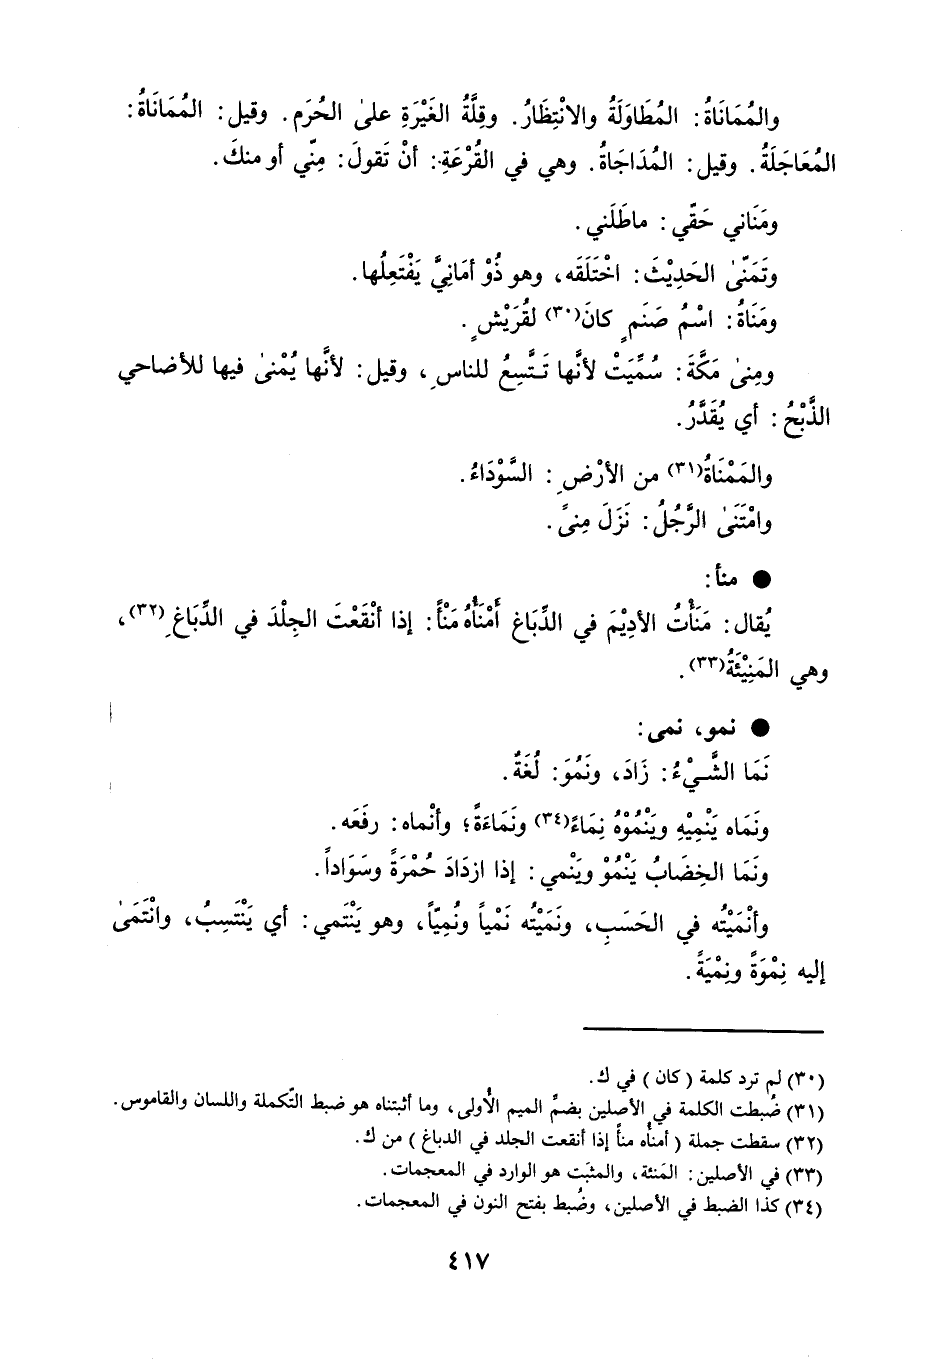 والمُمَانَاةُ: المُطَاوَلَةُ والانْتِظَارُ. وقِلَّةُ الغَيْرَةِ علىٰ الحُرَم. وقيل: المُمَانَاةُ:
المُعَاجَلَةُ. وقيل: المُدَاجَاةُ. وهي في القُرْعَةِ: أنْ تَقولَ: مِنّي أو منكَ.
ومَنَاني حَقّي: ماطَلَني.
وتَمَنّىٰ الحَدِيْثَ: اخْتَلَقَه، وهو ذُوْ أمَانِيَّ يَفْتَعِلُها.
ومَنَاةُ: اسْمُ صَنَمٍ كانَ(٣٠) لقُرَيْشٍ.
ومِنىٰ مَكَّةَ: سُمِّيَتْ لأنَّها تَتَّسِعُ للناسِ، وقيل: لأنَّها يُمْنىٰ فيها للأضاحي
الذَّبْحُ: أي يُقَدَّرُ.
والمَمْنَاةُ(٣١) من الأرْضِ: السَّوْدَاءُ.
وامْتَنىٰ الرَّجُلُ: نَزَلَ مِنىً.
● منأ:
يُقال: مَنَأْتُ الأدِيْمَ في الدِّبَاغ أَمْنَأُهُ مَنْأً: إذا أنْقَعْتَ الجِلْدَ في الدِّبَاغِ(٣٢)،
وهي المَنِيْئَةُ(٣٣).
● نمو، نمى:
نَمَا الشَّيْءُ: زَادَ، ونَمُوَ: لُغَةٌ.
ونَمَاه يَنْمِيْهِ ويَنْمُوْهُ نِمَاءً(٣٤) ونَمَاءَةً؛ وأنْماه: رفَعَه.
ونَمَا الخِضَابُ يَنْمُوْ ويَنْمي: إذا ازدَادَ حُمْرَةً وسَوَاداً.
وأنْمَيْتُه في الحَسَبِ، ونَمَيْتُه نَمْياً ونُمِيّاً، وهو يَنْتَمي: أي يَنْتَسِبُ، وانْتَمَىٰ
إليه نِمْوَةً ونِمْيَةً.
(٣٠) لم ترد كلمة ( كان ) في ك.
(٣١) ضُبطت الكلمة في الأصلين بضمِّ الميم الأُولى، وما أثبتناه هو ضبط التّكملة واللسان والقاموس.
(٣٢) سقطت جملة ( أمنأُه منأً إذا أنقعت الجلد في الدباغ ) من ك.
(٣٣) في الأصلين: المَنئة، والمثبَت هو الوارد في المعجمات.
(٣٤) كذا الضبط في الأصلين، وضُبط بفتح النون في المعجمات.
٤١٧